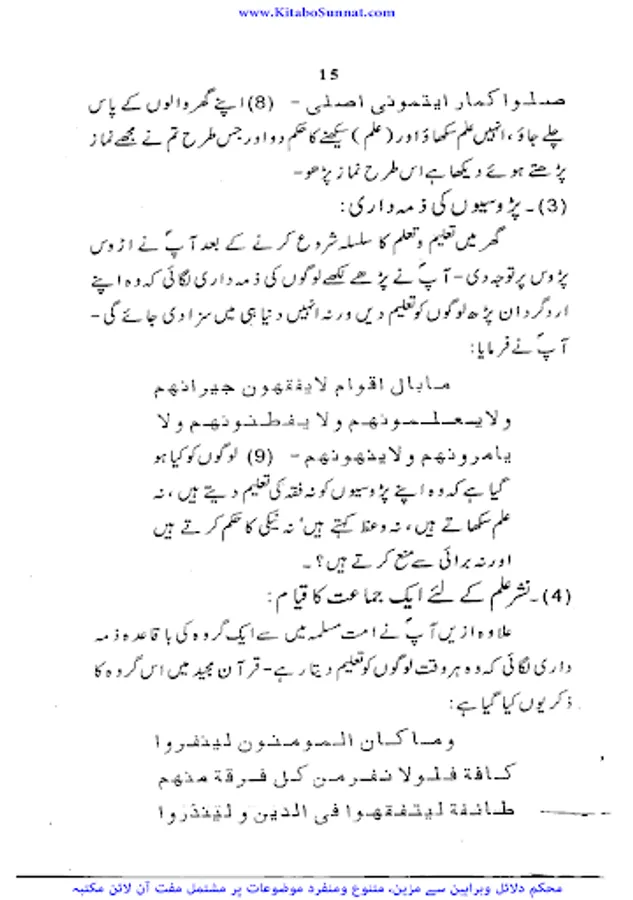 www.KitaboSunnat.com
15
صلوا كمار ايتمونى اصلى - (8) اپنے گھر والوں کے پاس
چلے جاؤ، انہیں علم سکھاؤ اور (علم) سیکھنے کا حکم دو اور جس طرح تم نے مجھے نماز
پڑھتے ہوئے دیکھا ہے اس طرح نماز پڑھو-
(3)۔ پڑوسیوں کی ذمہ داری:
گھر میں تعلیم و تعلم کا سلسلہ شروع کرنے کے بعد آپؐ نے اڑوس
پڑوس پر توجہ دی- آپؐ نے پڑھے لکھے لوگوں کی ذمہ داری لگائی کہ وہ اپنے
ارد گرد ان پڑھ لوگوں کو تعلیم دیں ورنہ انہیں دنیا ہی میں سزا دی جائے گی-
آپؐ نے فرمایا:
مابال اقوام لايفقهون جيرانهم
ولايعلمونهم ولا يفطنونهم ولا
يامرونهم ولاينهونهم- (9) لوگوں کو کیا ہو
گیا ہے کہ وہ اپنے پڑوسیوں کو نہ فقہ کی تعلیم دیتے ہیں، نہ
علم سکھاتے ہیں، نہ وعظ کہتے ہیں' نہ نیکی کا حکم کرتے ہیں
اور نہ برائی سے منع کرتے ہیں؟۔
(4)۔ نشر علم کے لئے ایک جماعت کا قیام:
علاوہ ازیں آپؐ نے امت مسلمہ میں سے ایک گروہ کی باقاعدہ ذمہ
داری لگائی کہ وہ ہر وقت لوگوں کو تعلیم دیتا رہے- قرآن مجید میں اس گروہ کا
ذکر یوں کیا گیا ہے:
وما كان المومنون لينفروا
كافة فلولا نفر من كل فرقة منهم
طائفة ليتفقهوا فى الدين و لينذروا
محکم دلائل وبراہین سے مزین، متنوع ومنفرد موضوعات پر مشتمل مفت آن لائن مکتبہ